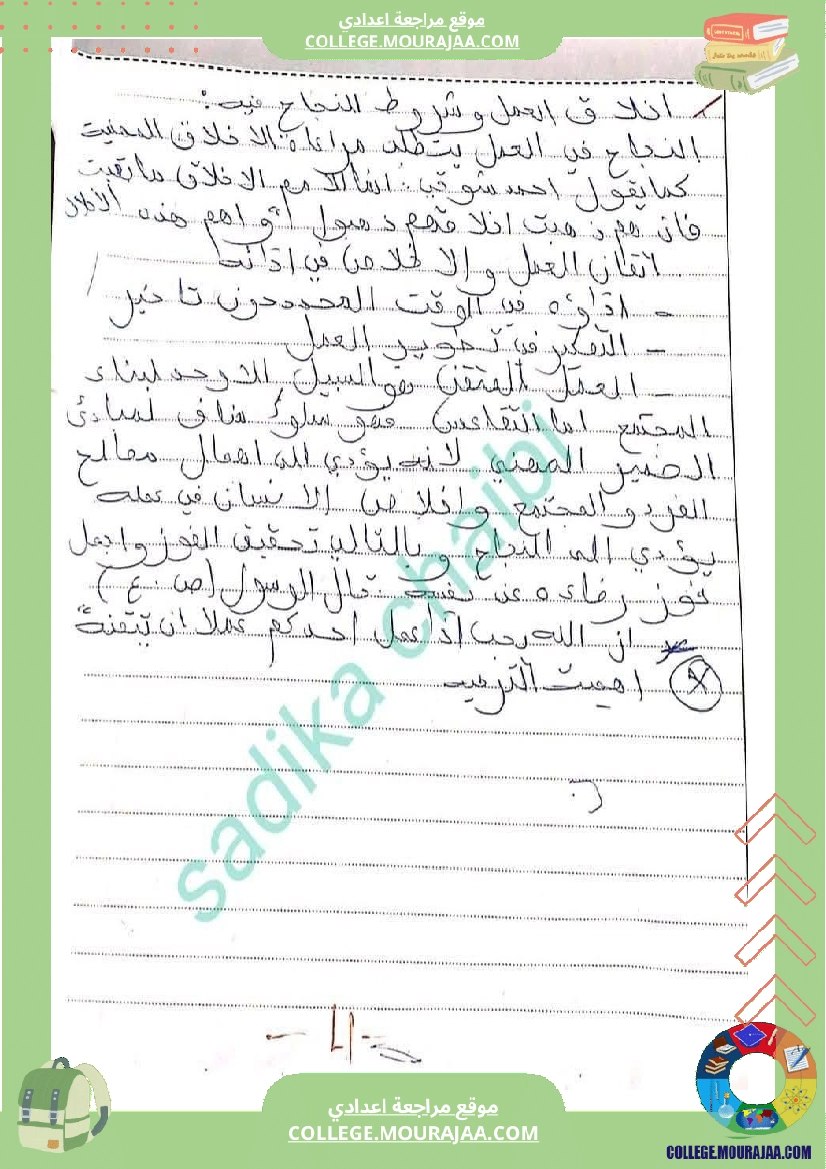 موقع مراجعة اعدادي
COLLEGE.MOURAJAA.COM
اخلاق العمل و شروط النجاح فيه :
النجاح في العمل يتطلب مراعاة الاخلاق المهنية
كما يقول احمد شوقي : انما الامم الاخلاق ما بقيت
فان هم ذهبت اخلاقهم ذهبوا و اهم هذه الأخلاق
اتقان العمل و الاخلاص في ادائه
- اداؤه في الوقت المحدد دون تاخير
- التفكير في تطوير العمل
- العمل المتقن هو السبيل الاوحد لبناء
المجتمع اما التقاعس فهو سلوك مناف لمبادئ
الضمير المهني لانه يؤدي الى اهمال مصالح
الفرد و المجتمع و اخلاص الانسان في عمله
يؤدي الى النجاح و بالتالي تحقيق الفوز و اجمل
فوز رضاءه عن نفسه قال الرسول (ص . ع )
ان الله يحب اذا عمل احدكم عملا ان يتقنه"
اهميت الترفيه
sadika chaibi
- 4 -
موقع مراجعة اعدادي
COLLEGE.MOURAJAA.COM
COLLEGE.MOURAJAA.COM